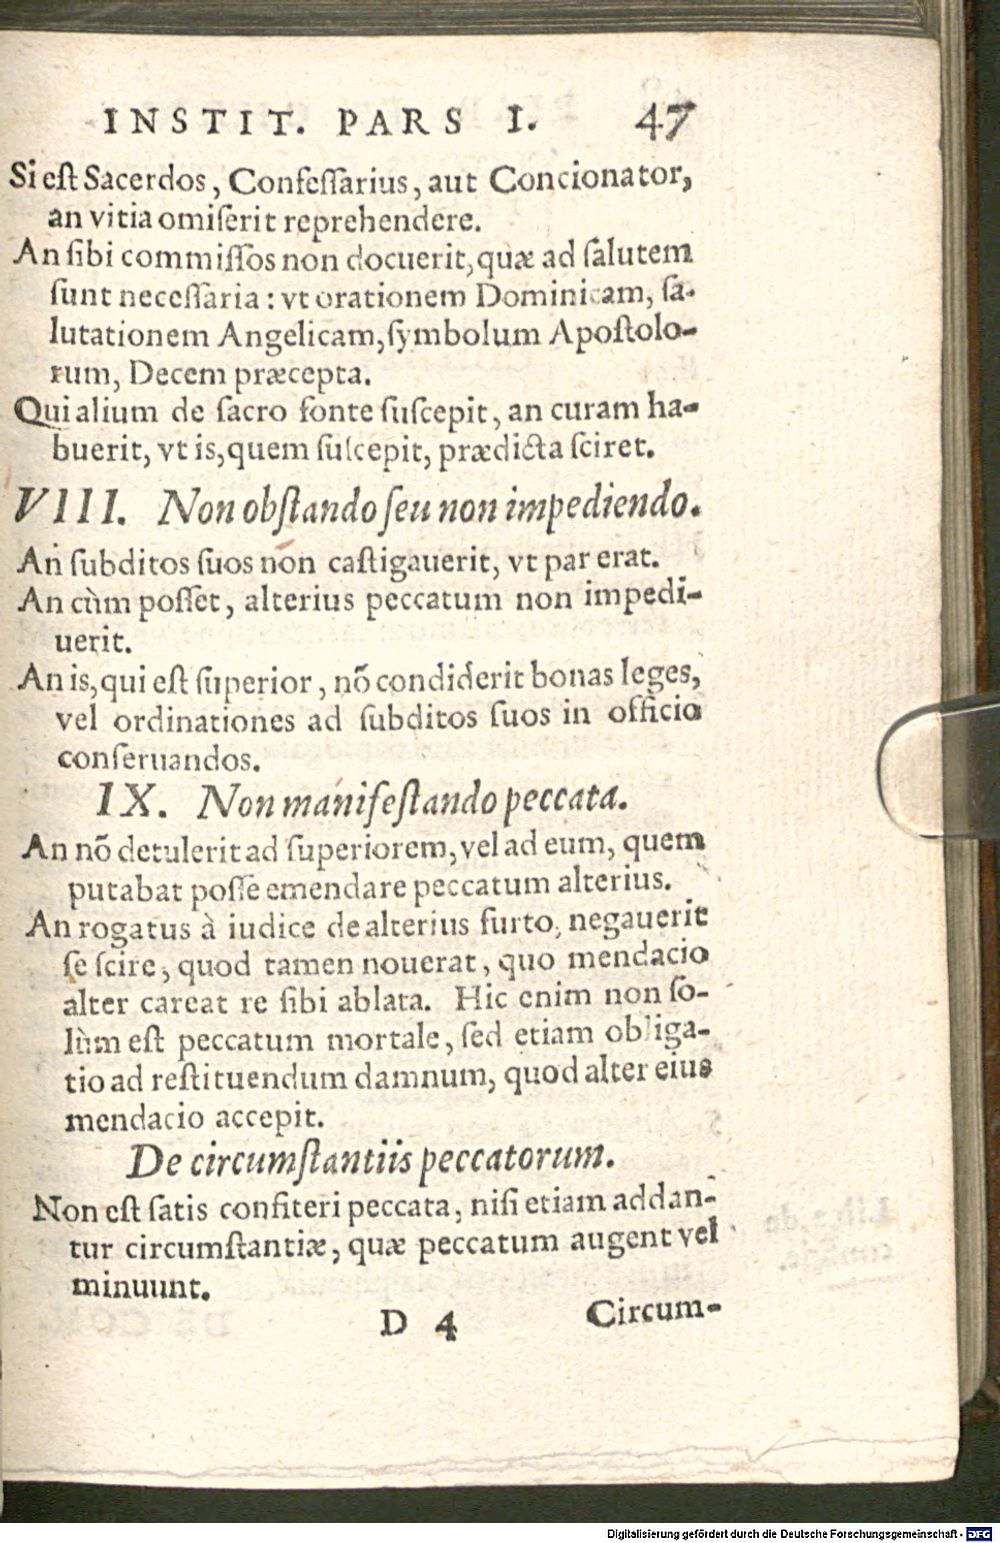 INSTIT. PARS I. 47
Si eſt Sacerdos, Confeſſarius, aut Concionator,
an vitia omiſerit reprehendere.
An ſibi commiſſos non docuerit, quæ ad ſalutem
ſunt neceſſaria: vt orationem Dominicam, ſa-
lutationem Angelicam, ſymbolum Apoſtolo-
rum, Decem præcepta.
Qui alium de ſacro fonte ſuſcepit, an curam ha-
buerit, vt is, quem ſuſcepit, prædicta ſciret.
VIII. Non obſtando ſeu non impediendo.
An ſubditos ſuos non caſtigauerit, vt par erat.
An cùm poſſet, alterius peccatum non impedi-
uerit.
An is, qui eſt ſuperior, nõ condiderit bonas leges,
vel ordinationes ad ſubditos ſuos in officio
conſeruandos.
IX. Non manifeſtando peccata.
An nõ detulerit ad ſuperiorem, vel ad eum, quem
putabat poſſe emendare peccatum alterius.
An rogatus à iudice de alterius furto, negauerit
ſe ſcire, quod tamen nouerat, quo mendacio
alter careat re ſibi ablata. Hic enim non ſo-
lùm eſt peccatum mortale, ſed etiam obliga-
tio ad reſtituendum damnum, quod alter eius
mendacio accepit.
De circumſtantiis peccatorum.
Non eſt ſatis confiteri peccata, niſi etiam addan-
tur circumſtantiæ, quæ peccatum augent vel
minuunt.
D 4 Circum-
Digitalisierung gefördert durch die Deutsche Forschungsgemeinschaft - DFG